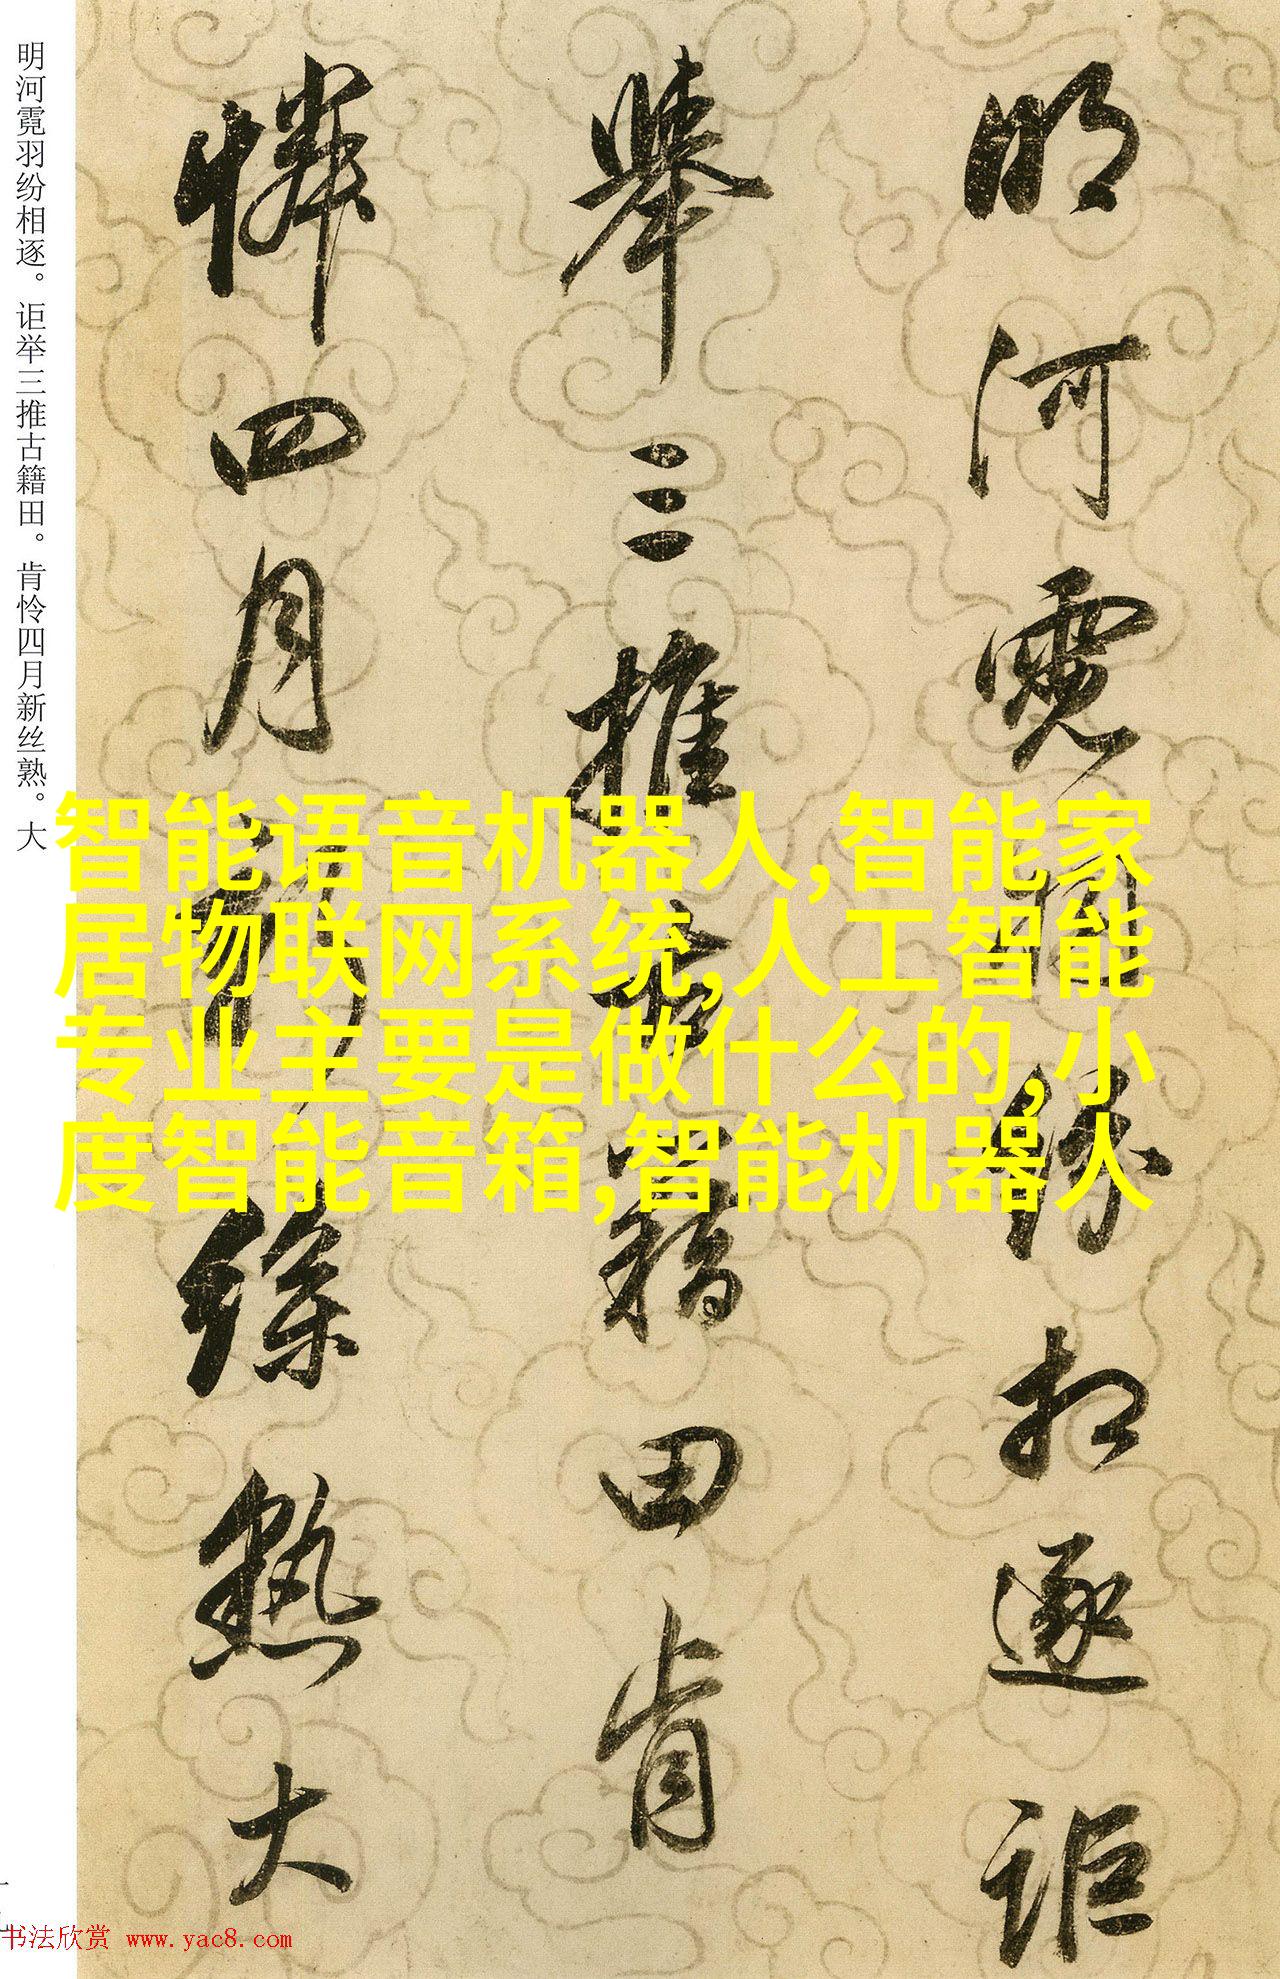 明河霓羽纷相逐。讵举三推古籍田。肯怜四月新丝熟。大
明河霓羽纷相逐讵
舉三推古籍田肯
憐四月新絲熟大
智能语音机器人,智能家
居物联网系统,人工智能
专业主要是做什么的,小
度智能音箱,智能机器人
书法欣赏 www.yac8.com